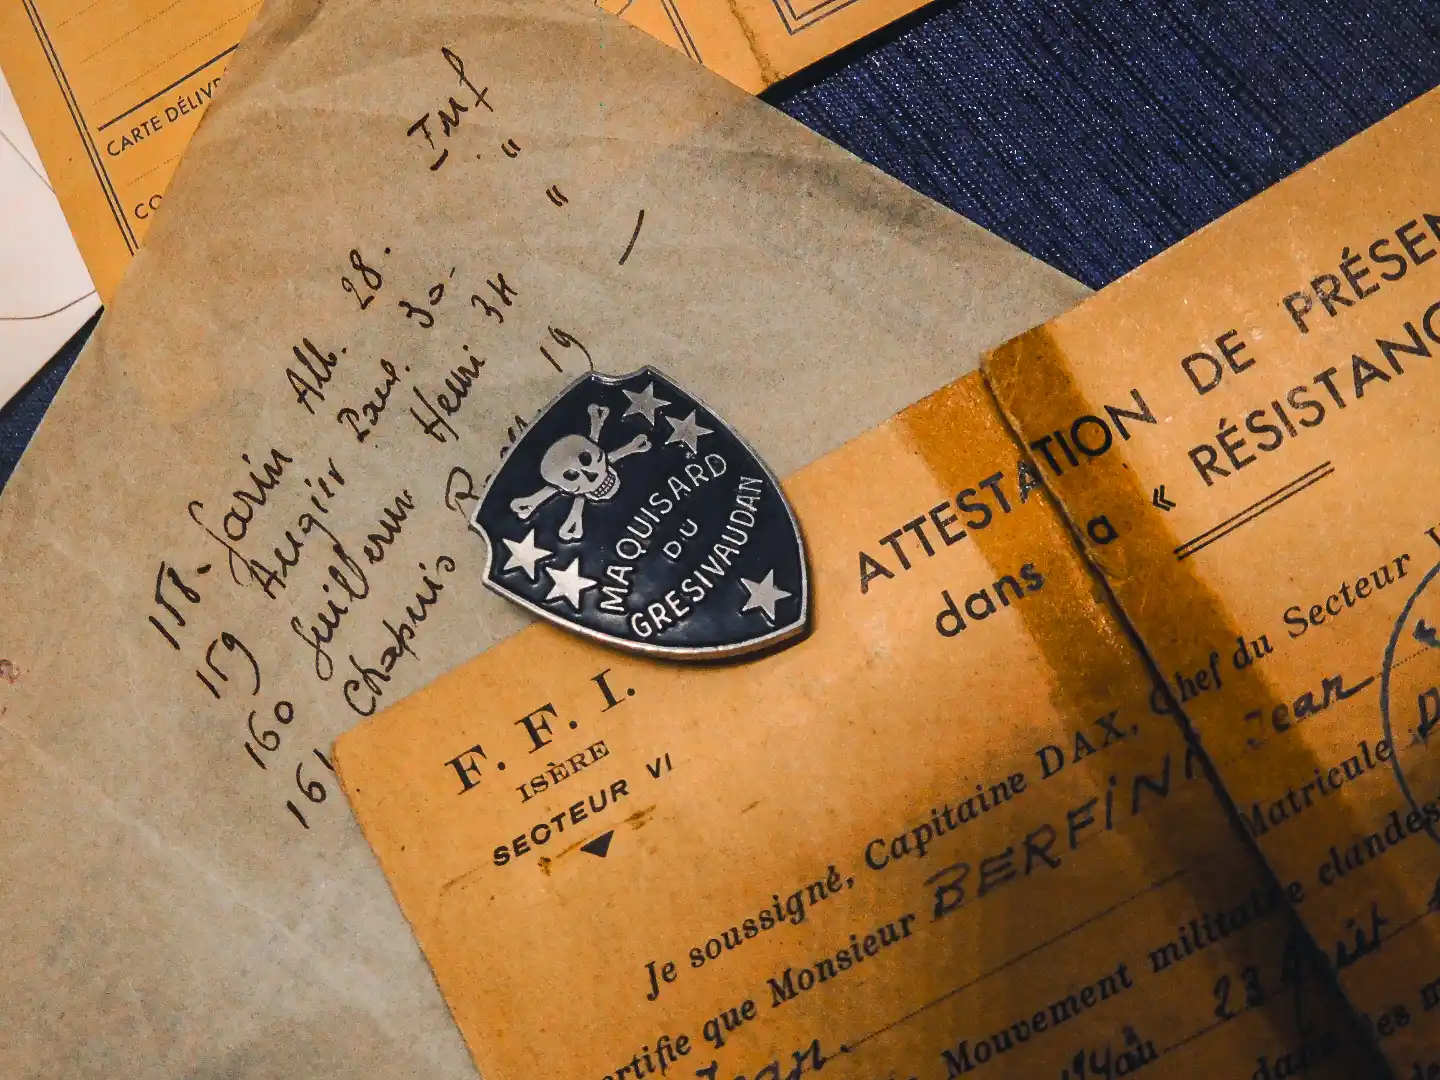 CARTE DÉLIVR
CO
Inf
"
"
158. Sarin Alb. 28.
159 Augier Paul. 30-
160 Guillerme Henri 34
161 Chapuis 19
MAQUISARD
DU
GRESIVAUDAN
F. F. I.
ISÈRE
SECTEUR VI
ATTESTATION DE PRÉSEN
dans la « RÉSISTANC
Je soussigné, Capitaine DAX, Chef du Secteur
ertifie que Monsieur BERFINI Jean
Matricule
Mouvement militaire clandes
23 Août